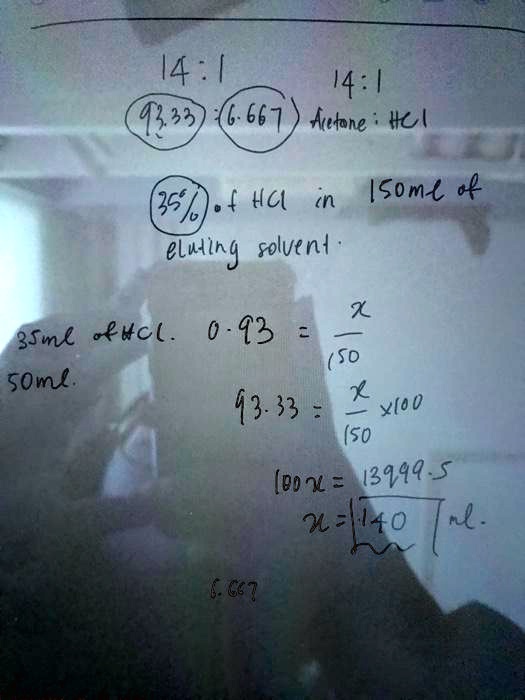 14 : 1
14 : 1
93.33 : 6.667) Acetone : HCl
35% of HCl in 150ml of
eluting solvent.
35ml of HCl. 0.93 = x/150
50ml.
93.33 = x/150 x100
100x = 13999.5
x = 140 ml.
6.667